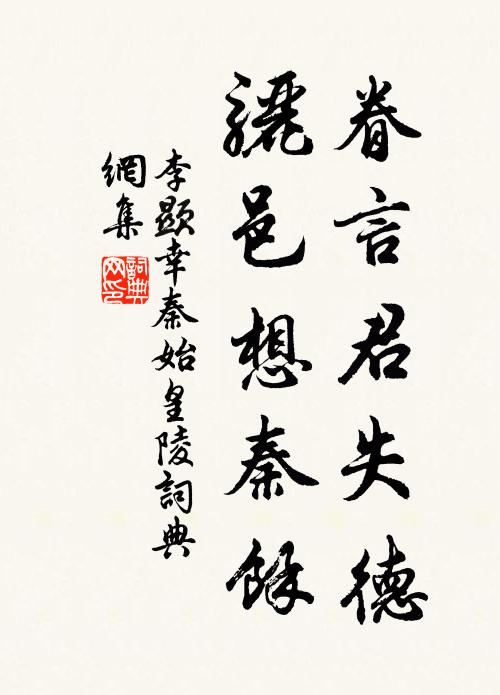 眷言君失德
驪邑想秦餘
李顯幸秦始皇陵詞典
網集
詞典網印